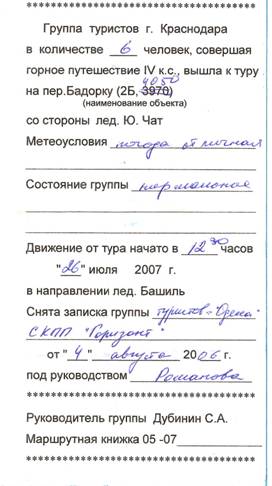 ************************************
Группа туристов г. Краснодара
в количестве 6 человек, совершая
горное путешествие IV к.с., вышла к туру
4050
на пер.Бадорку (2Б, 3970)
(наименование объекта)
со стороны лед. Ю. Чат
Метеоусловия погода отличная
Состояние группы нормальное
Движение от тура начато в 12 30 часов
"26" июля 2007 г.
в направлении лед. Башиль
Снята записка группы туристов г. Одессы
СКПП "Горизонт"
от "4" августа 2006 г.
под руководством Романова
************************************
Руководитель группы Дубинин С.А.
Маршрутная книжка 05 -07
************************************